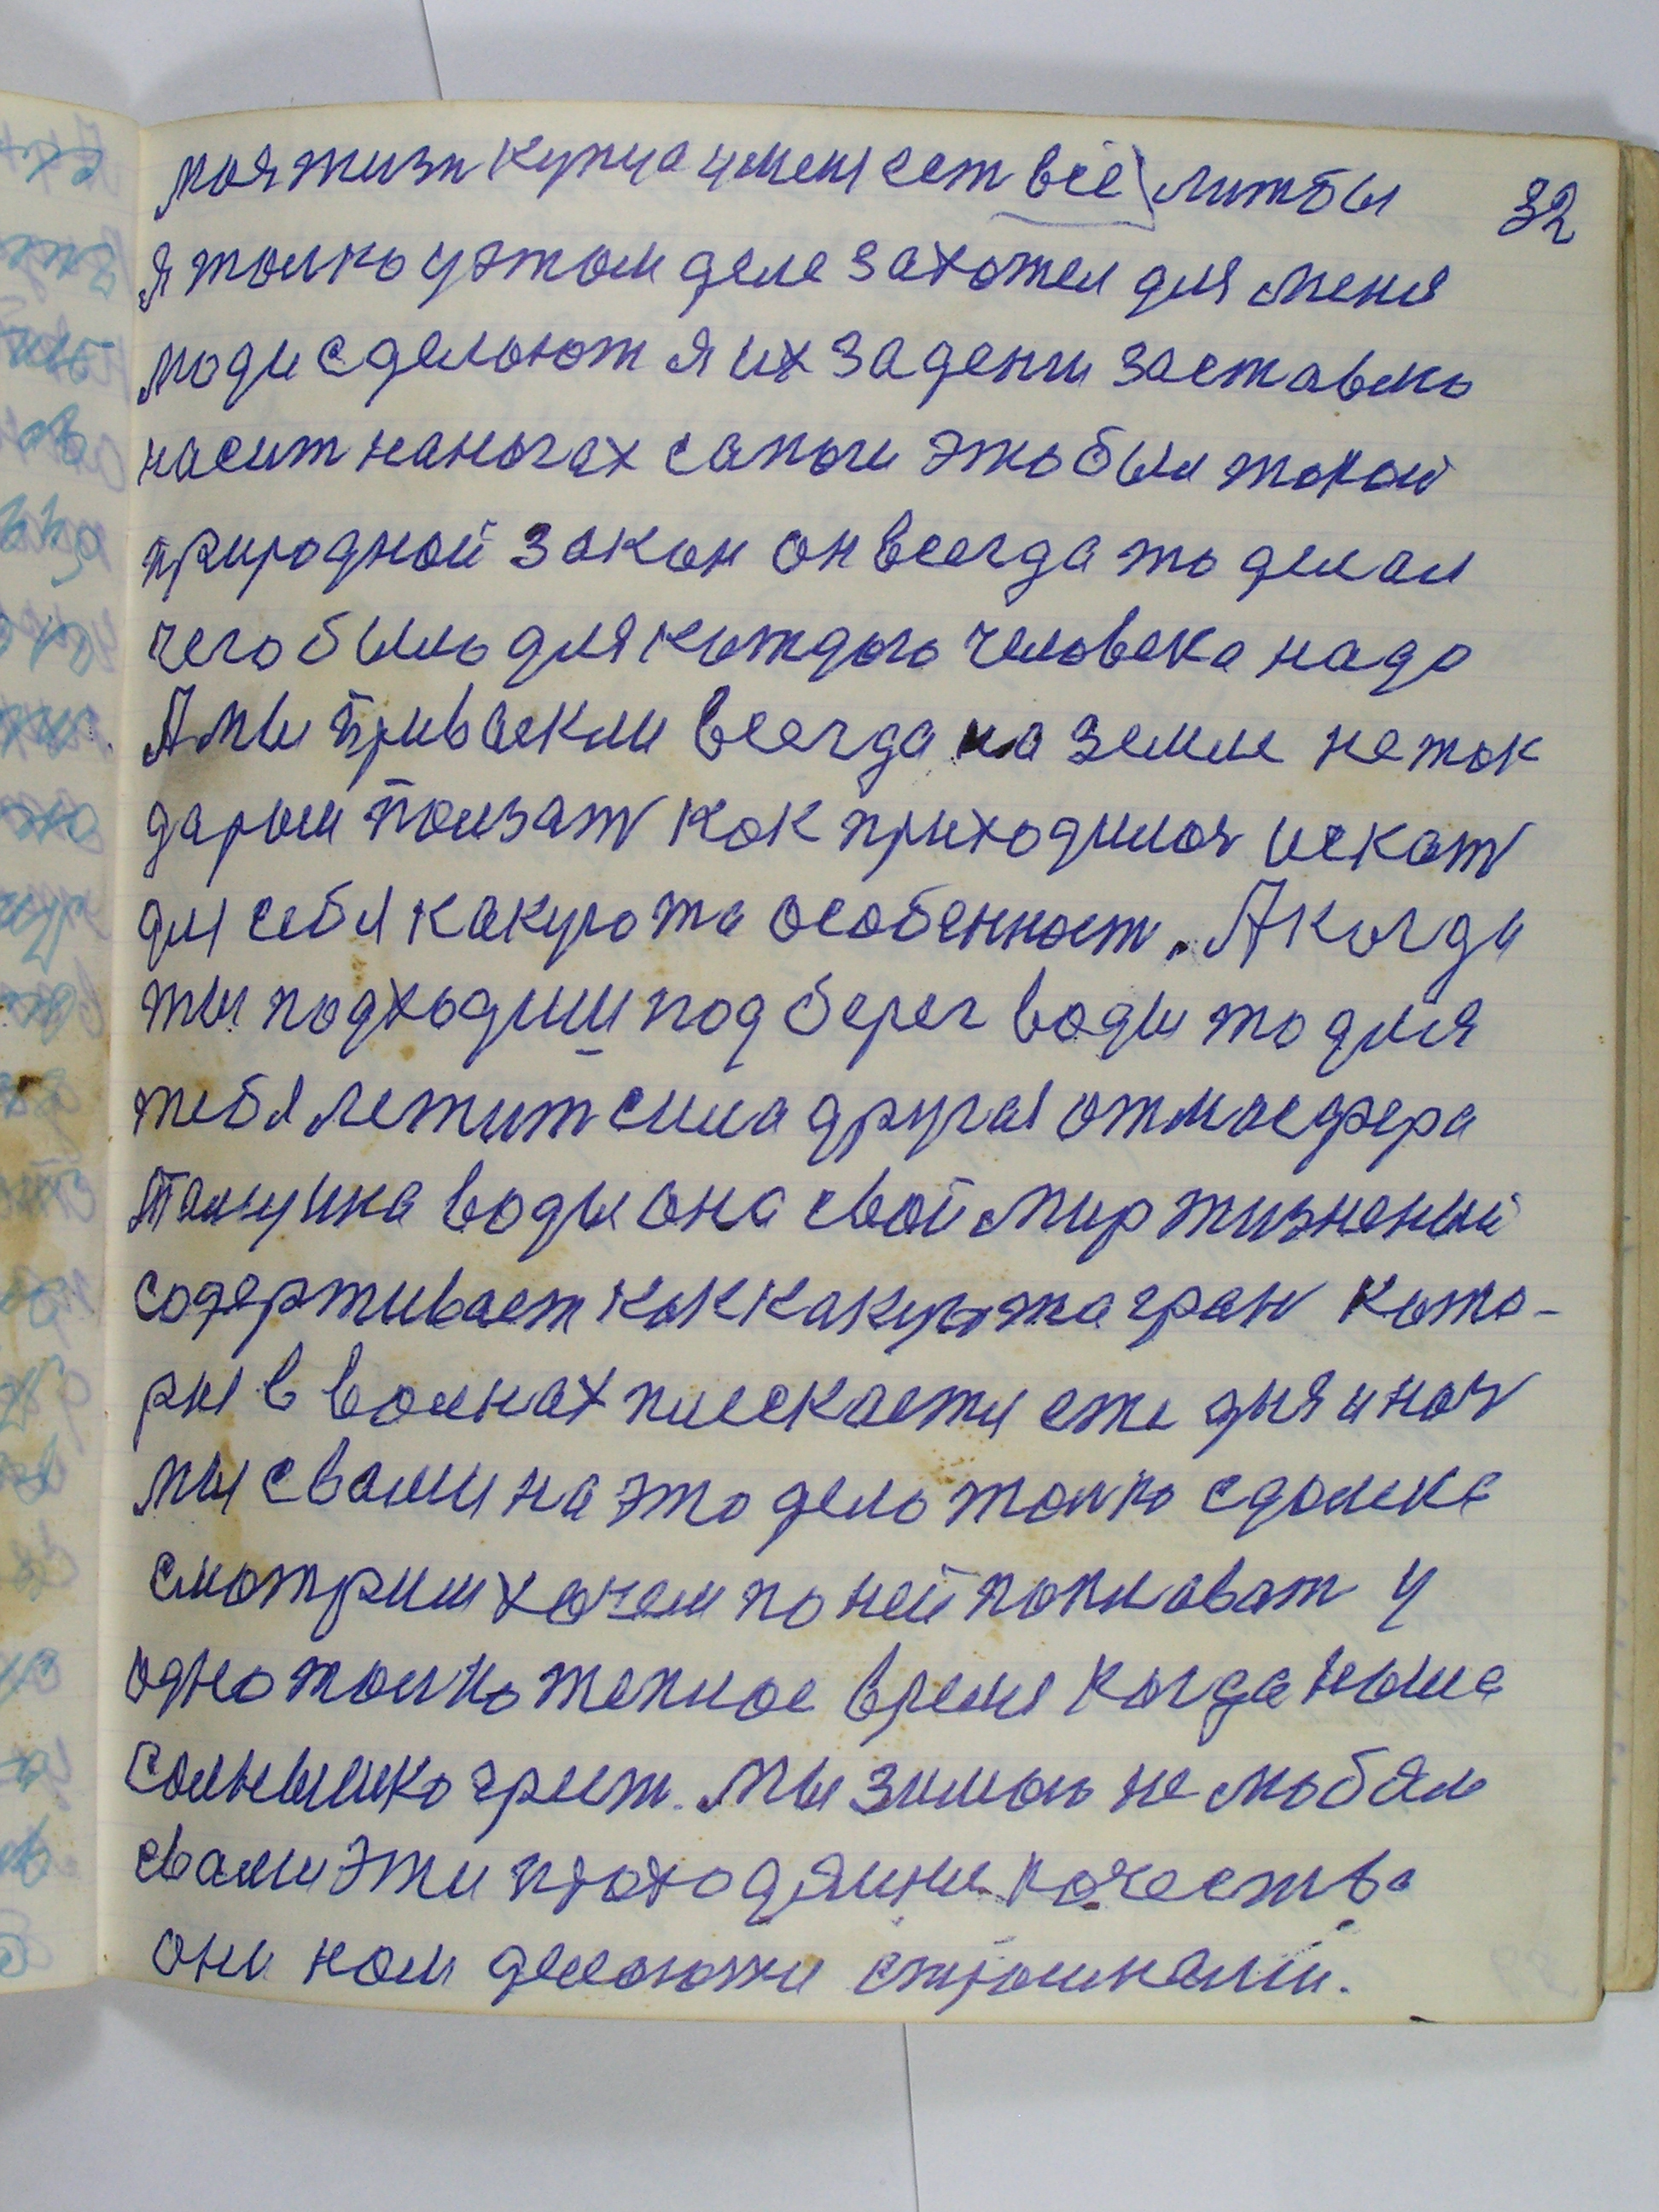 моя жизн купца уменя ест всё литбы 32
я толко уэтом деле захотел для меня
люди сделоют я их за денги заставлю
насит наногах сапоги это был токой
природной закон он всегда то делал
чего было для каждого человека надо
А мы привыкли всегда на земле не так
даром ползат как приходилос искат
для себя какуюто особенност. А когда
ты подходиш под берег воды то для
тебя лежит сила другая отмосфера
Толщина воды она свой мир жизненый
содерживает как какуюто гран кото-
рыя в волнах плескается еже дня и ноч
мы с вами на это дело толко сдалека
смотрим хочем по ней поплават у
одно толко теплое время когда наша
солнышко греет. мы зимою не любям
свами эти проходящии качества
они нам делаются страшнами.